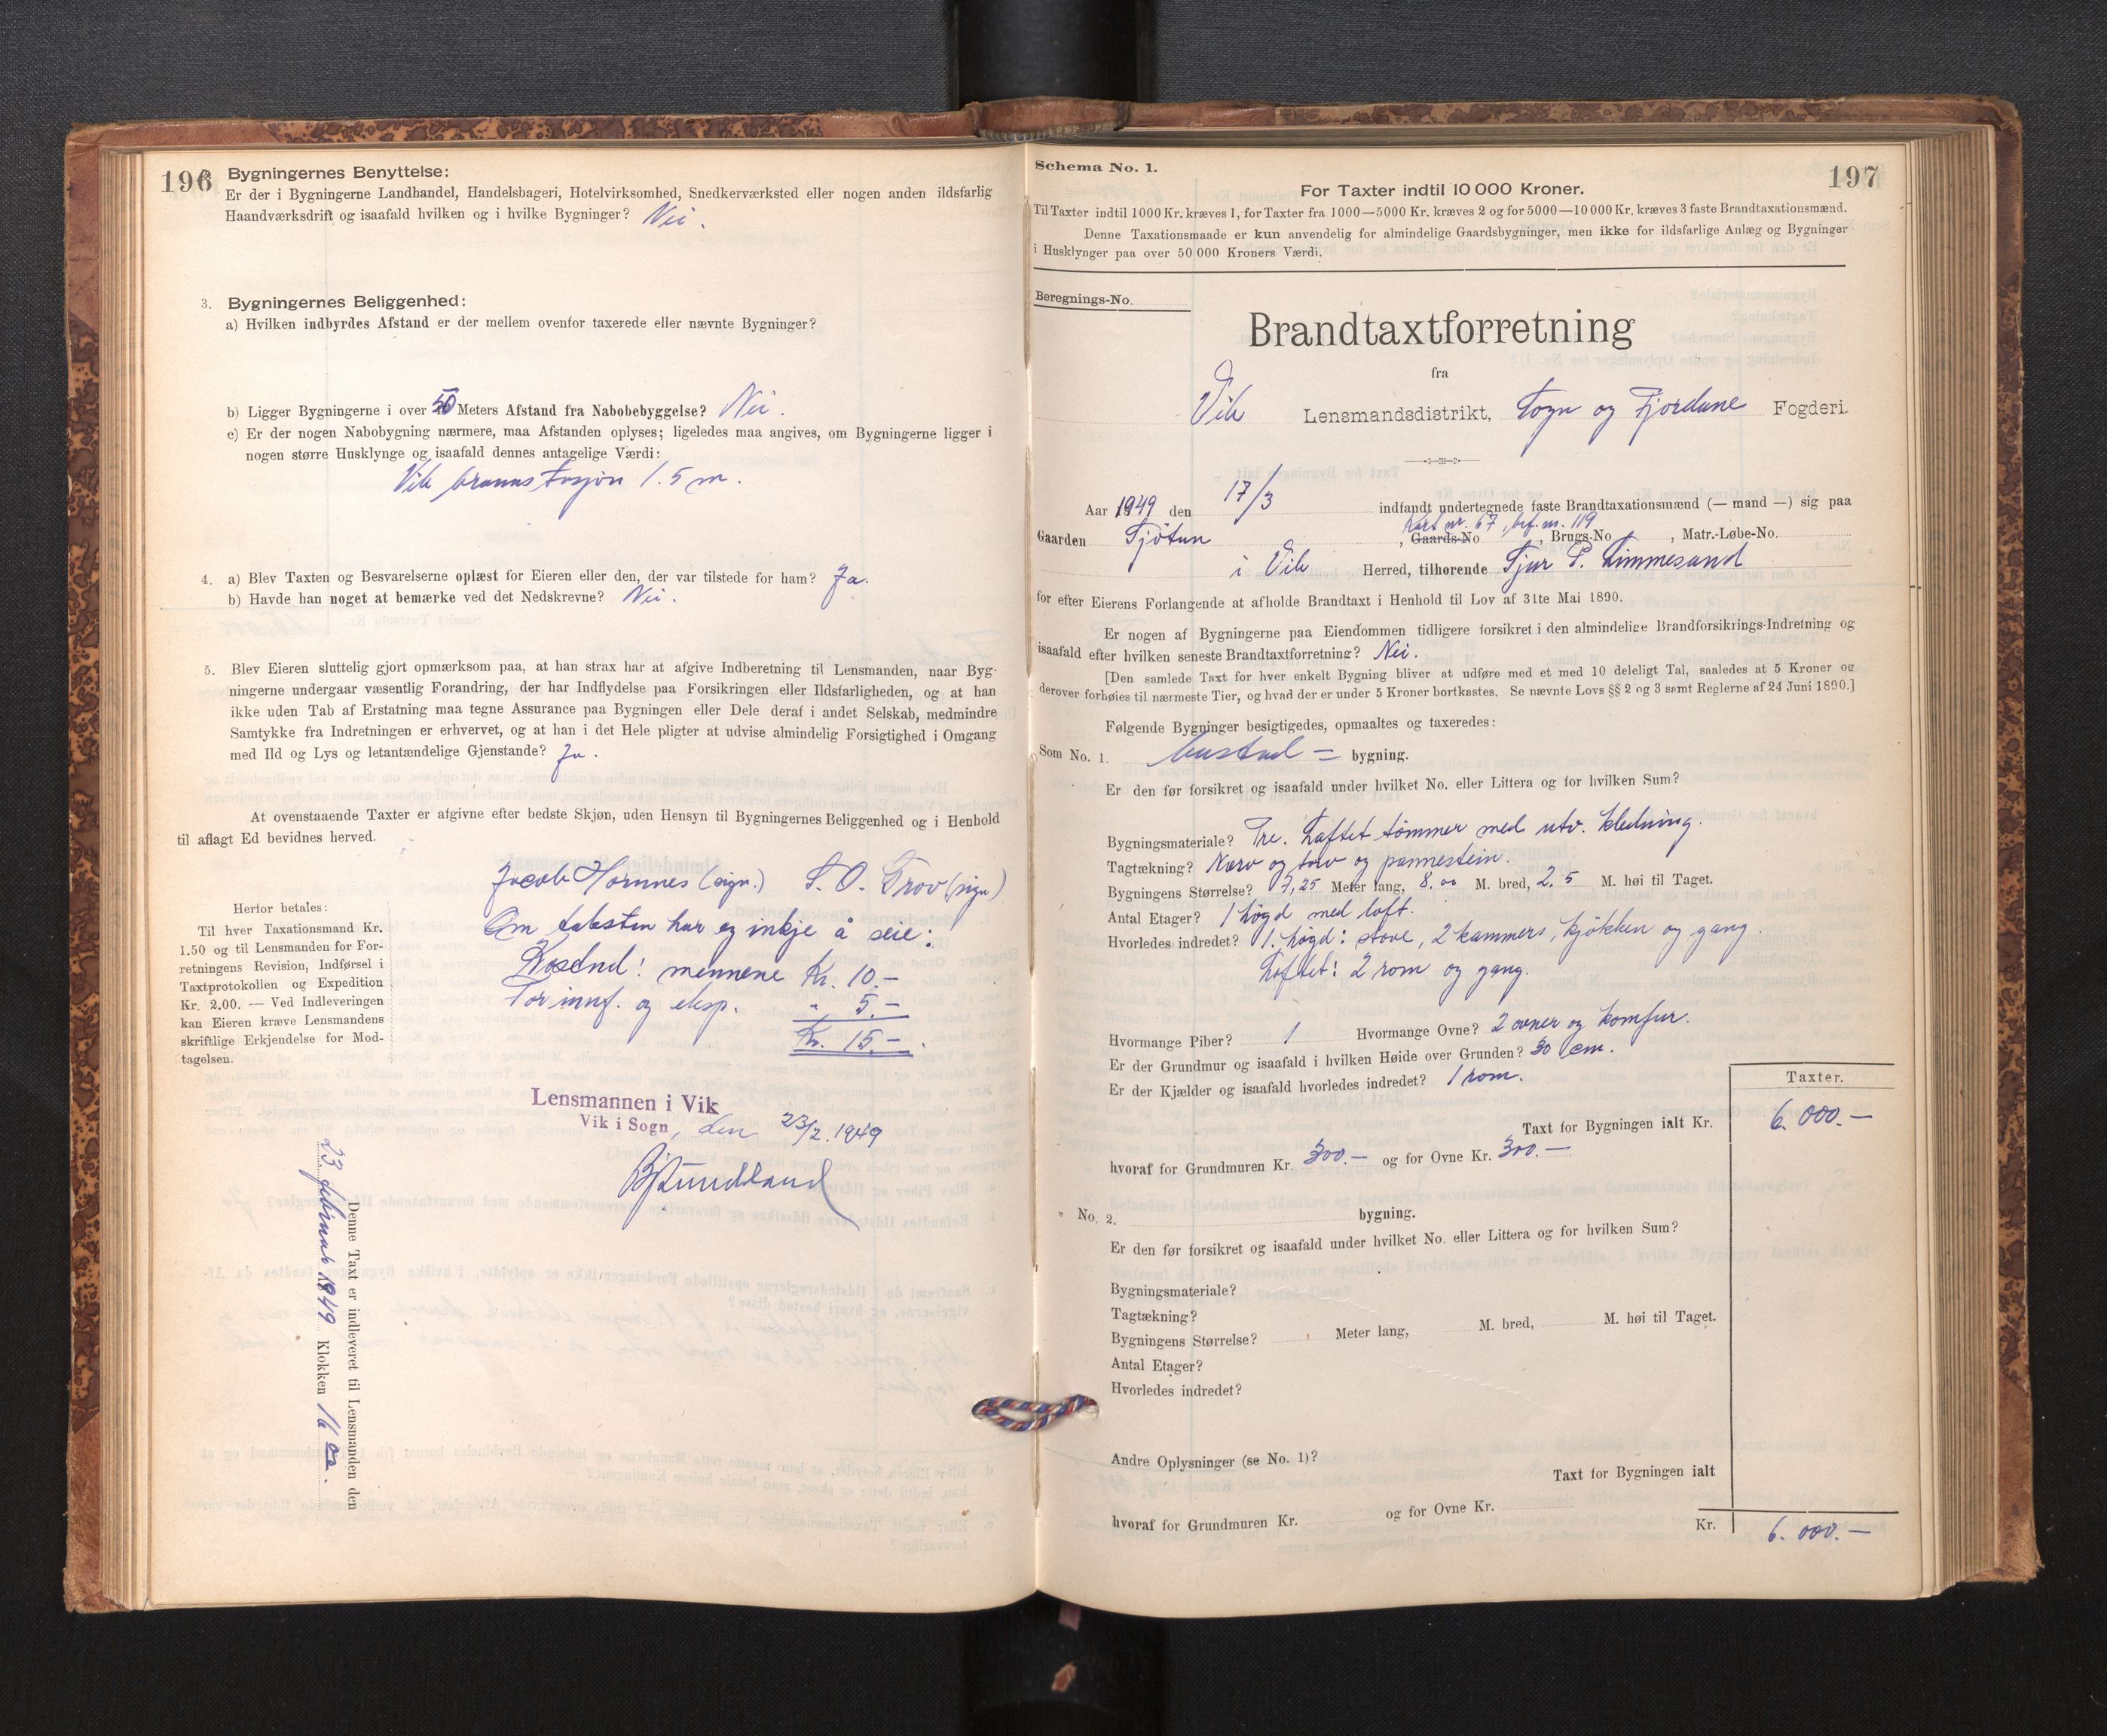 196
Bygningernes Benyttelse:
Er der i Bygningerne Landhandel, Handelsbageri, Hotelvirksomhed, Snedkerværksted eller nogen anden ildsfarlig
Haandværksdrift og isaafald hvilken og i hvilke Bygninger? Nei.
3. Bygningernes Beliggenhed:
a) Hvilken indbyrdes Afstand er der mellem ovenfor taxerede eller nævnte Bygninger?
b) Ligger Bygningerne i over 50 Meters Afstand fra Nabobebyggelse? Nei.
c) Er der nogen Nabobygning nærmere, maa Afstanden oplyses; ligeledes maa angives, om Bygningerne ligger i
nogen større Husklynge og isaafald dennes antagelige Værdi:
Vik brannstasjon 1.5 m.
4. a) Blev Taxten og Besvarelserne oplæst for Eieren eller den, der var tilstede for ham? Ja.
b) Havde han noget at bemærke ved det Nedskrevne? Nei.
5. Blev Eieren sluttelig gjort opmærksom paa, at han strax har at afgive Indberetning til Lensmanden, naar Byg-
ningerne undergaar væsentlig Forandring, der har Indflydelse paa Forsikringen eller Ildsfarligheden, og at han
ikke uden Tab af Erstatning maa tegne Assurance paa Bygningen eller Dele deraf i andet Selskab, medmindre
Samtykke fra Indretningen er erhvervet, og at han i det Hele pligter at udvise almindelig Forsigtighed i Omgang
med Ild og Lys og letantændelige Gjenstande? Ja.
At ovenstaaende Taxter er afgivne efter bedste Skjøn, uden Hensyn til Bygningernes Beliggenhed og i Henhold
til aflagt Ed bevidnes herved.
Jacob Hornnes (sign.) S. O. Grov (sign)
Om taksten har eg inkje å seie:
Kostnd: mennene Kr. 10.-
For innf. og eksp. " 5.-
Kr. 15.-
Herfor betales:
Til hver Taxationsmand Kr.
1.50 og til Lensmanden for For-
retningens Revision, Indførsel i
Taxtprotokollen og Expedition
Kr. 2.00. — Ved Indleveringen
kan Eieren kræve Lensmandens
skriftlige Erkjendelse for Mod-
tagelsen.
Lensmannen i Vik
Vik i Sogn, den 23/2. 1949
Denne Taxt er indleveret til Lensmanden den
23 februar 1949 Klokken 16 00.
197
Schema No. 1.
For Taxter indtil 10 000 Kroner.
Til Taxter indtil 1000 Kr. kræves 1, for Taxter fra 1000—5000 Kr. kræves 2 og for 5000—10 000 Kr. kræves 3 faste Brandtaxationsmænd.
Denne Taxationsmaade er kun anvendelig for almindelige Gaardsbygninger, men ikke for ildsfarlige Anlæg og Bygninger
i Husklynger paa over 50 000 Kroners Værdi.
Beregnings-No.
Brandtaxtforretning
fra
Vik Lensmandsdistrikt, Sogn og Fjordane Fogderi.
Aar 1949 den 17/3 indfandt undertegnede faste Brandtaxationsmænd (— mand —) sig paa
Kart nr. 67, bef. nr. 119
Gaarden Tjötun, Gaards-No , Brugs-No , Matr.-Løbe-No.
i Vik Herred, tilhørende Sjur P. Limmesand
for efter Eierens Forlangende at afholde Brandtaxt i Henhold til Lov af 31te Mai 1890.
Er nogen af Bygningerne paa Eiendommen tidligere forsikret i den almindelige Brandforsikrings-Indretning og
isaafald efter hvilken seneste Brandtaxtforretning? Nei.
[Den samlede Taxt for hver enkelt Bygning bliver at udføre med et med 10 deleligt Tal, saaledes at 5 Kroner og
derover forhøies til nærmeste Tier, og hvad der er under 5 Kroner bortkastes. Se nævnte Lovs §§ 2 og 3 samt Reglerne af 24 Juni 1890.]
Følgende Bygninger besigtigedes, opmaaltes og taxeredes:
Som No. 1. bustad = bygning.
Er den før forsikret og isaafald under hvilket No. eller Littera og for hvilken Sum?
Bygningsmateriale? Tre. Laftet tømmer med utv. kledning.
Tagtækning? Næver og torv og pannestein.
Bygningens Størrelse? 7,25 Meter lang, 8.00 M. bred, 2.5 M. høi til Taget.
Antal Etager? 1 høgd med loft.
Hvorledes indredet? 1. høgd: stove, 2 kammers, kjökken og gang.
Loftet: 2 rom og gang.
Hvormange Piber? 1 Hvormange Ovne? 2 ovner og komfur.
Er der Grundmur og isaafald i hvilken Høide over Grunden? 30 cm.
Er der Kjælder og isaafald hvorledes indredet? 1 rom.
Taxter.
Taxt for Bygningen ialt Kr. 6.000.—
hvoraf for Grundmuren Kr. 300.— og for Ovne Kr. 300.—
" No. 2. bygning.
Er den før forsikret og isaafald under hvilket No. eller Littera og for hvilken Sum?
Bygningsmateriale?
Tagtækning?
Bygningens Størrelse? Meter lang, M. bred, M. høi til Taget.
Antal Etager?
Hvorledes indredet?
Andre Oplysninger (se No. 1)?
Taxt for Bygningen ialt
hvoraf for Grundmuren Kr. og for Ovne Kr.
Kr. 6.000.—